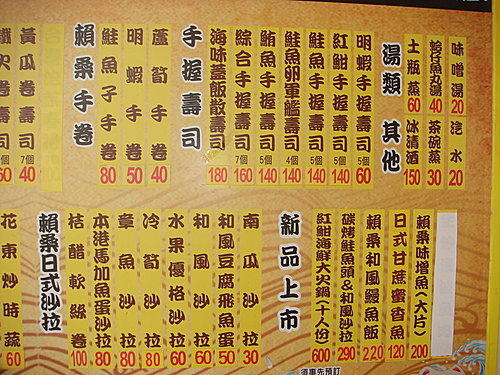 湯類
味噌湯 20
蛤仔魚丸湯 40
土瓶蒸 60
其他
汽水 20
茶碗蒸 30
冰清酒 150
手握壽司
明蝦手握壽司 60
紅魽手握壽司 5個 140
鮭魚手握壽司 5個 140
鮭魚卵軍艦壽司 140
鮪魚手握壽司 5個 140
綜合手握壽司 7個 160
海味蓋飯散壽司 180
賴桑手卷
蘆筍手卷 40
明蝦手卷 50
鮭魚子手卷 80
黃瓜卷壽司 7個 40
鐵火卷壽司 5個 60
新品上市
賴桑味增魚(大片) 200
日式甘蔗蜜香魚 120
賴桑和風鰻魚飯 220
碳烤鮭魚頭&和風沙拉 290
紅魽海鮮大火鍋(十人份) 600
須事先預訂
賴桑日式沙拉
南瓜沙拉 30
和風豆腐飛魚蛋 50
和風沙拉 60
水果優格沙拉 60
冷筍沙拉 80
章魚沙拉 80
本港馬加魚蛋沙拉 80
桔醋軟絲卷 100
花東炒時蔬 60